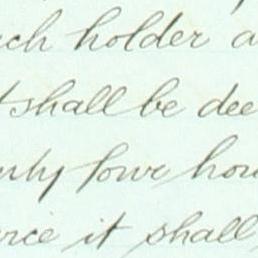 each holder a
t shall be dee
nty four hou
vice it shall